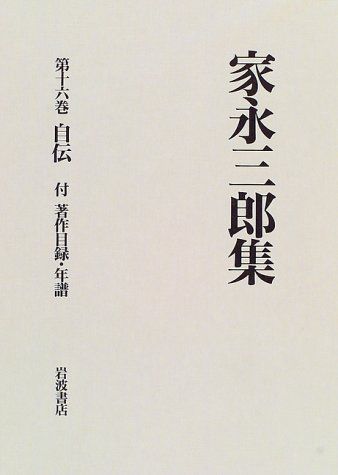 家永三郎集
第十六巻 自伝 付 著作目録・年譜
岩波書店